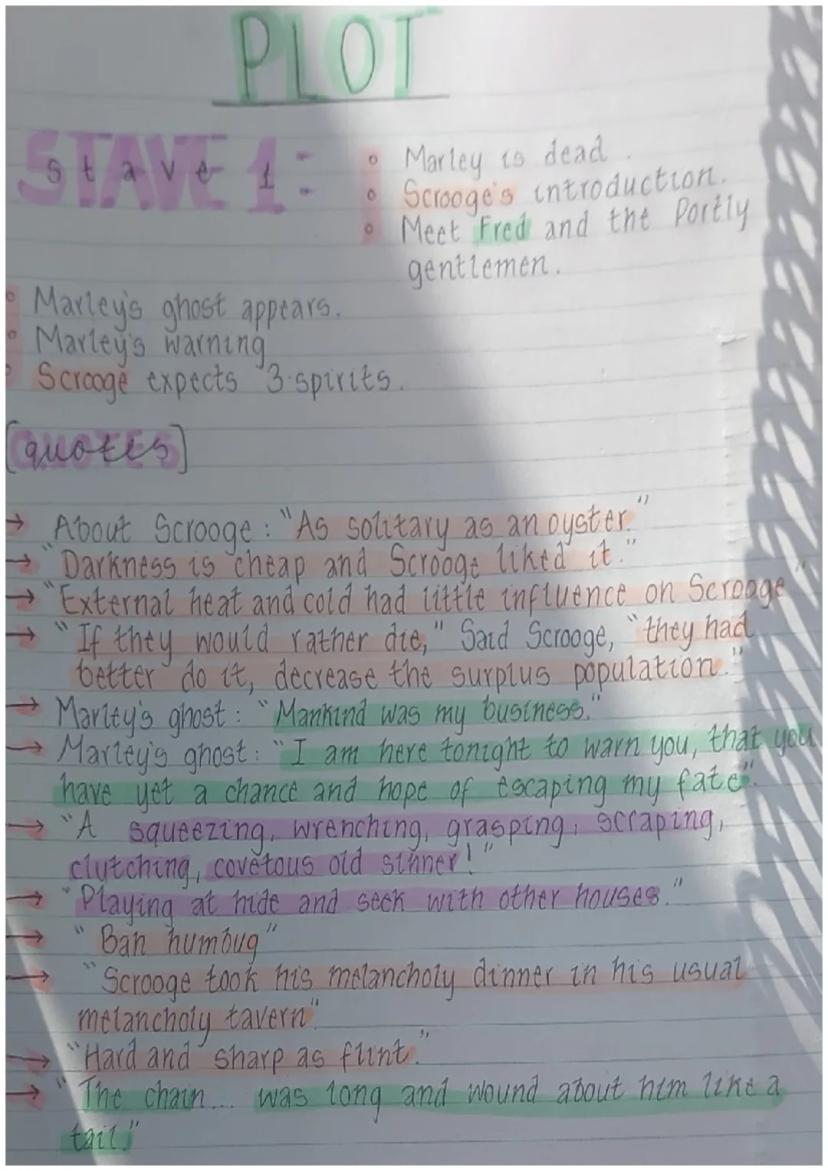 PLOT
Stave 1:
• Marley is dead.
• Scrooge's introduction.
• Meet Fred and the Portly
gentlemen.
• Marley's ghost appears.
• Marley's warning
• Scrooge expects 3 spirits.
[quotes]
→ About Scrooge: "As solitary as an oyster."
→ "Darkness is cheap and Scrooge liked it."
→ "External heat and cold had little influence on Scrooge"
→ "If they would rather die," Said Scrooge, "they had
better do it, decrease the surplus population."
→ Marley's ghost: "Mankind was my business."
→ Marley's ghost: "I am here tonight to warn you, that you
have yet a chance and hope of escaping my fate".
→ "A squeezing, wrenching, grasping, scraping,
clutching, covetous old sinner!"
→ "Playing at hide and seek with other houses."
→ "Bah humbug"
→ "Scrooge took his melancholy dinner in his usual
melancholy tavern"
→ "Hard and sharp as flint."
→ "The chain... was long and wound about him like a
tail."